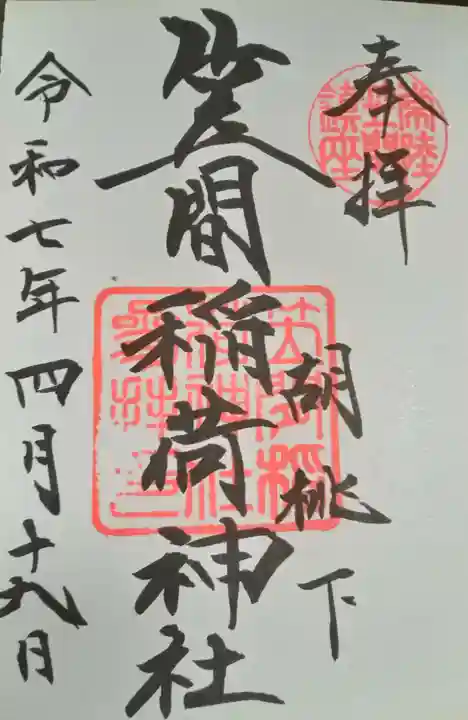 奉拝
胡桃下
笠間稲荷神社
令和七年四月十九日